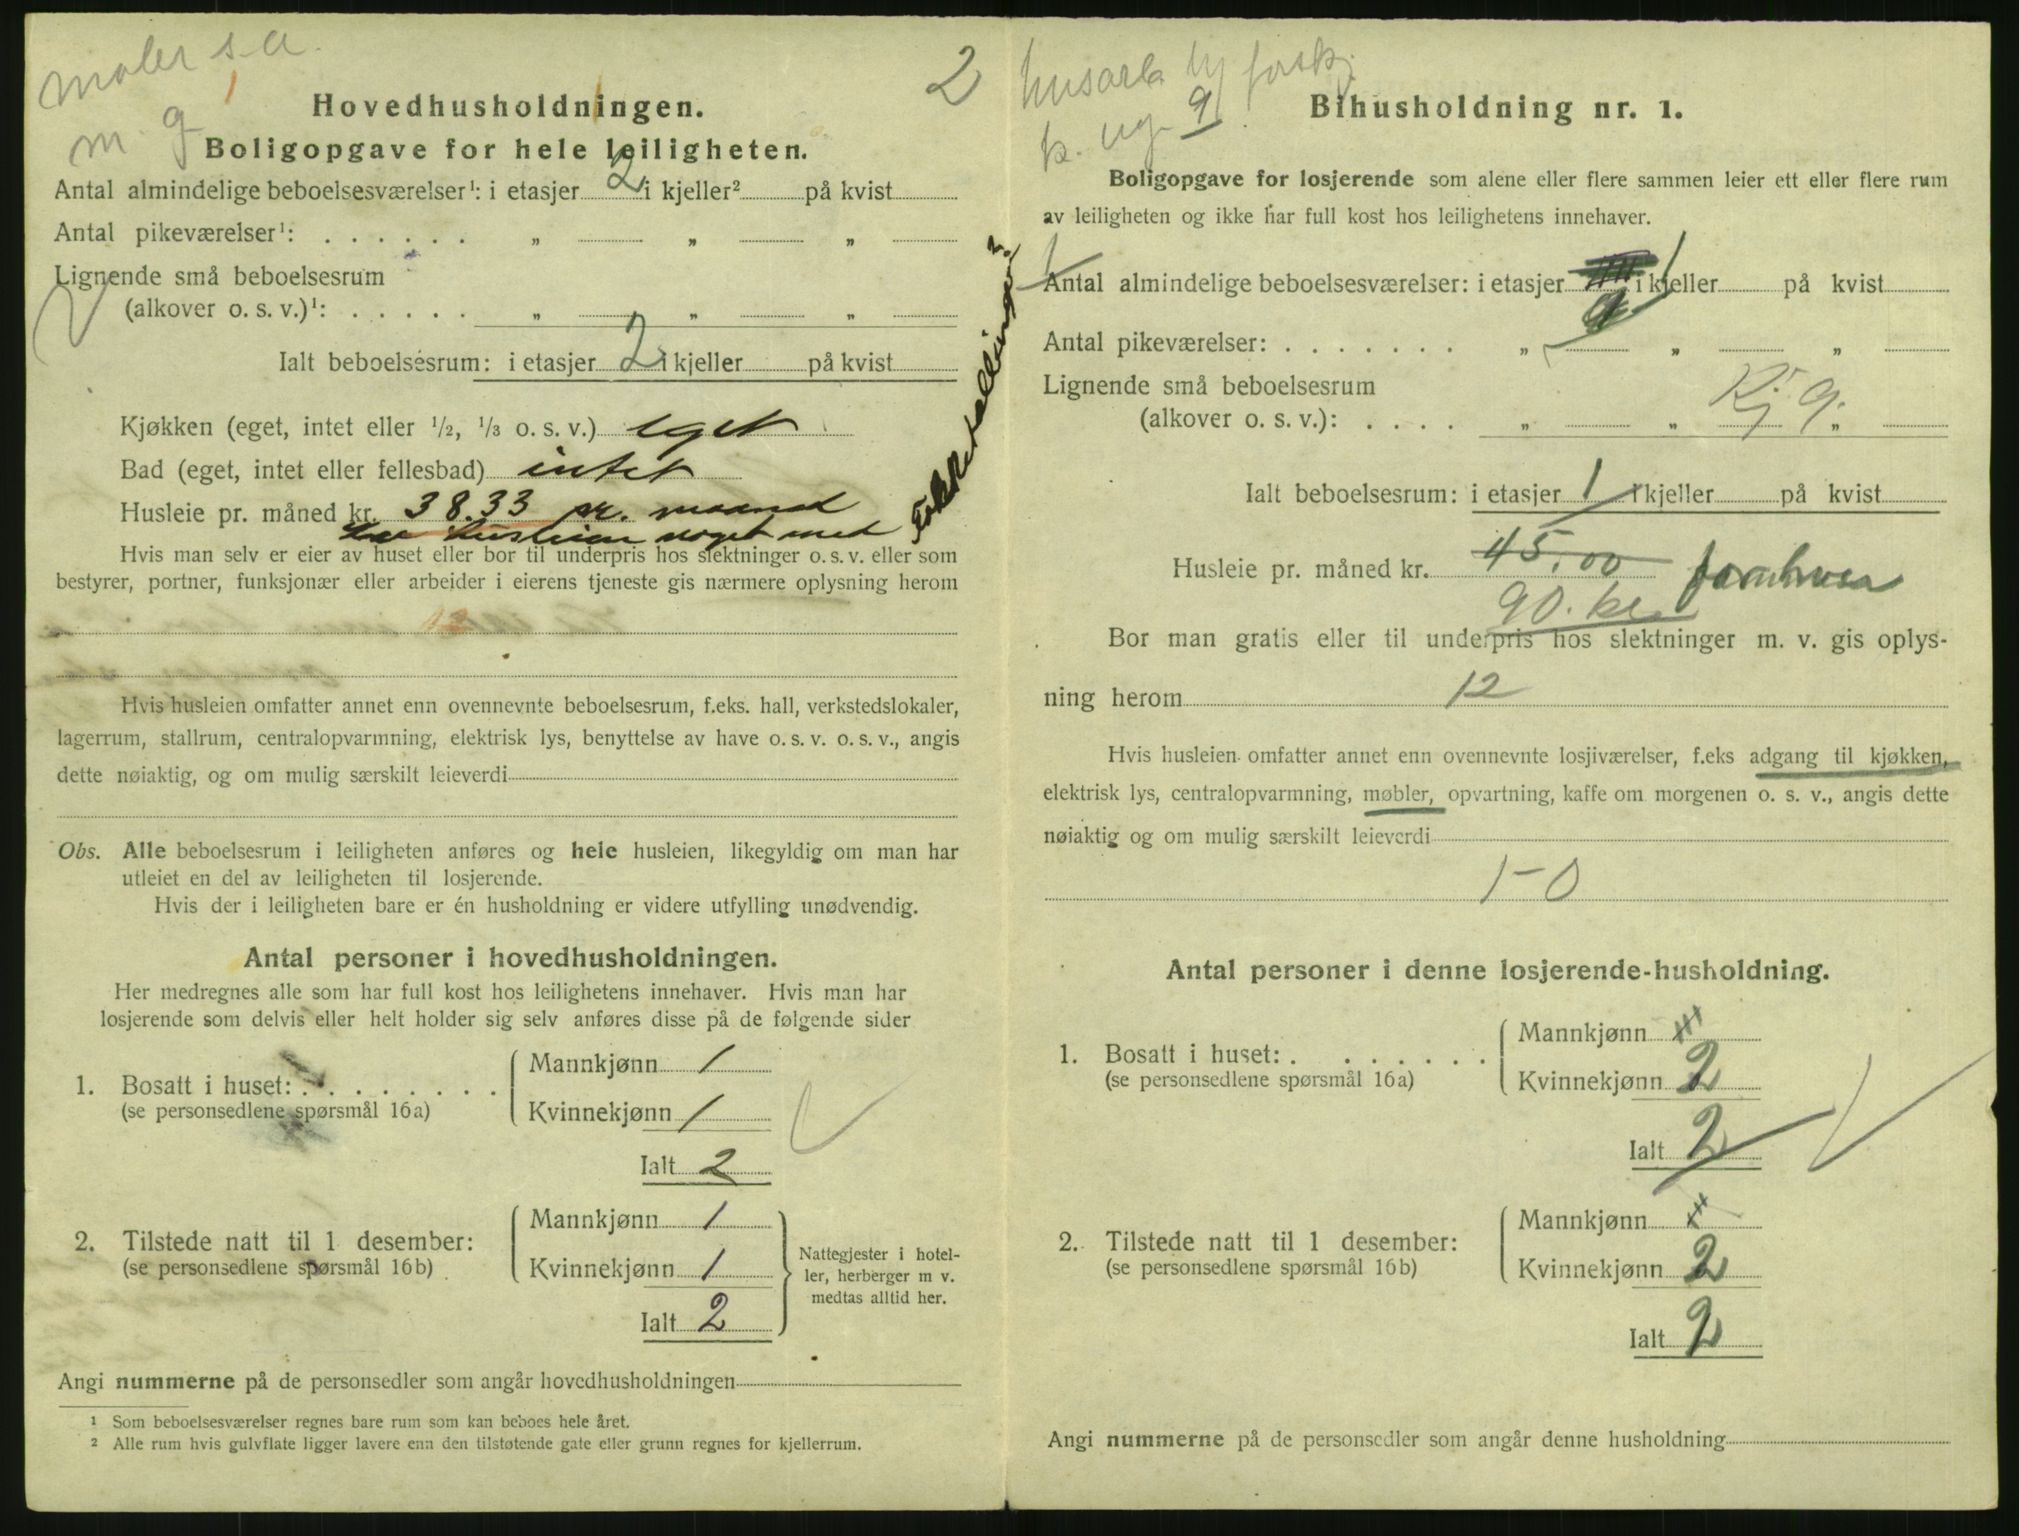 maler s.a.
m. g
1
2
Hovedhusholdningen.
Boligopgave for hele leiligheten.
Antal almindelige beboelsesværelser¹: i etasjer 2 i kjeller² på kvist
Antal pikeværelser¹: . . . . . . „ „ „
Lignende små beboelsesrum
(alkover o. s. v.)¹: . . . . . „ „ „
Ialt beboelsesrum: i etasjer 2 i kjeller på kvist
Kjøkken (eget, intet eller 1/2, 1/3 o. s. v.) eget
Bad (eget, intet eller fellesbad) intet
Husleie pr. måned kr. 38.33 pr. maaned
Har husleien noget med
Folketellingen?
Hvis man selv er eier av huset eller bor til underpris hos slektninger o. s. v. eller som
bestyrer, portner, funksjonær eller arbeider i eierens tjeneste gis nærmere oplysning herom
12
Hvis husleien omfatter annet enn ovennevnte beboelsesrum, f.eks. hall, verkstedslokaler,
lagerrum, stallrum, centralopvarmning, elektrisk lys, benyttelse av have o. s. v. o. s. v., angis
dette nøiaktig, og om mulig særskilt leieverdi
Obs. Alle beboelsesrum i leiligheten anføres og hele husleien, likegyldig om man har
utleiet en del av leiligheten til losjerende.
Hvis der i leiligheten bare er én husholdning er videre utfylling unødvendig.
Antal personer i hovedhusholdningen.
Her medregnes alle som har full kost hos leilighetens innehaver. Hvis man har
losjerende som delvis eller helt holder sig selv anføres disse på de følgende sider
1. Bosatt i huset: . . . . . . . .
(se personsedlene spørsmål 16a)
Mannkjønn 1
Kvinnekjønn 1
Ialt 2
2. Tilstede natt til 1 desember:
(se personsedlene spørsmål 16b)
Mannkjønn 1
Kvinnekjønn 1
Ialt 2
Nattegjester i hotel-
ler, herberger m v.
medtas alltid her.
Angi nummerne på de personsedler som angår hovedhusholdningen
¹ Som beboelsesværelser regnes bare rum som kan beboes hele året.
² Alle rum hvis gulvflate ligger lavere enn den tilstøtende gate eller grunn regnes for kjellerrum.
husarb. hj forskj.
k. ug. g
Bihusholdning nr. 1.
Boligopgave for losjerende som alene eller flere sammen leier ett eller flere rum
av leiligheten og ikke har full kost hos leilighetens innehaver.
1
Antal almindelige beboelsesværelser: i etasjer 1 i kjeller på kvist
Antal pikeværelser: . . . . . . . „ „ „
Lignende små beboelsesrum
Kj. g.
(alkover o. s. v.): . . . . „ „ „
Ialt beboelsesrum: i etasjer 1 i kjeller på kvist
Husleie pr. måned kr. 45.00
90. kr
Bor man gratis eller til underpris hos slektninger m. v. gis oplys-
ning herom 12
Hvis husleien omfatter annet enn ovennevnte losjiværelser, f.eks adgang til kjøkken,
elektrisk lys, centralopvarmning, møbler, opvartning, kaffe om morgenen o. s. v., angis dette
nøiaktig og om mulig særskilt leieverdi
1-0
Antal personer i denne losjerende-husholdning.
1. Bosatt i huset: . . . . . . .
(se personsedlene spørsmål 16a)
Mannkjønn
Kvinnekjønn 2
Ialt 2
2. Tilstede natt til 1 desember:
(se personsedlene spørsmål 16b)
Mannkjønn
Kvinnekjønn 2
Ialt 2
Angi nummerne på de personsedler som angår denne husholdning